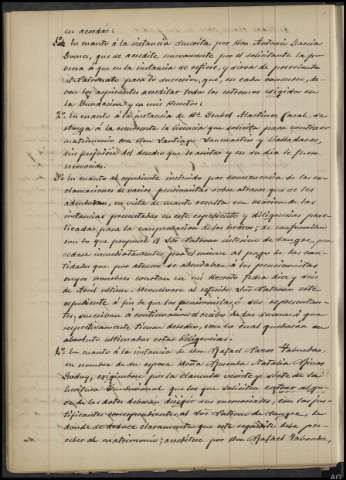 en acordar:
1º En cuanto á la instancia suscrita por Don Antonio García
que se acredite nuevamente por el solicitante la po-
breza á que en la instancia se refiere, y dirá de presentarla
el Patronato para lo sucesivo, que, en cada concurso, de-
ven los aspirantes acreditar todos los extremos exigidos en
la Fundación y en mis Decretos:
2º En cuanto á la instancia de Dª Isabel Martinez Casal, se
otorga á la recurrente la licencia que solicita para contraer
matrimonio con Don Santiago y Valladares,
sin perjuicio del derecho que le asista y en su dia le sea
reconocido.
3º En cuanto al expediente instruido por consecuencia de las re-
clamaciones de varios pensionistas sobre atrasos que se les
adeudaban, en vista de cuanto resulta con relacion de las
instancias presentadas en este expediente y diligencias prac-
ticadas para la comprobacion de los hechos; de conformidad
con lo que propuso el Sr. Patrono interino de Sangre, pro-
cedase inmediatamente por el mismo al pago de las can-
tidades que por atrasos se adeudaban á los pensionistas
cuyos nombres constan en mi decreto fecha diez y seis
de Abril ultimo. Devuelvase al referido Sr. Patrono este
expediente á fin de que los pensionistas, ó sus representan-
tes, suscriban á continuacion el recibo de las sumas á que
respectivamente tienen derecho, con lo cual quedarán en
absoluto ultimadas estas diligencias.
4º En cuanto á la instancia de Don Rafael Naxos Taboadas,
en nombre de su esposa Doña Ricarda Natalia
Godoy, exigiendose por la clausula veinte y siete de la
Escritura Fundacional que los que soliciten entrar al go-
ce de las dotes deberán dirigir sus memoriales, con los jus-
tificantes correspondientes, al Sr. Patrono de Sangre, de
donde se deduce claramente que este requisito debe pre-
ceder al matrimonio; acredítese por Don Rafael Taboadas,